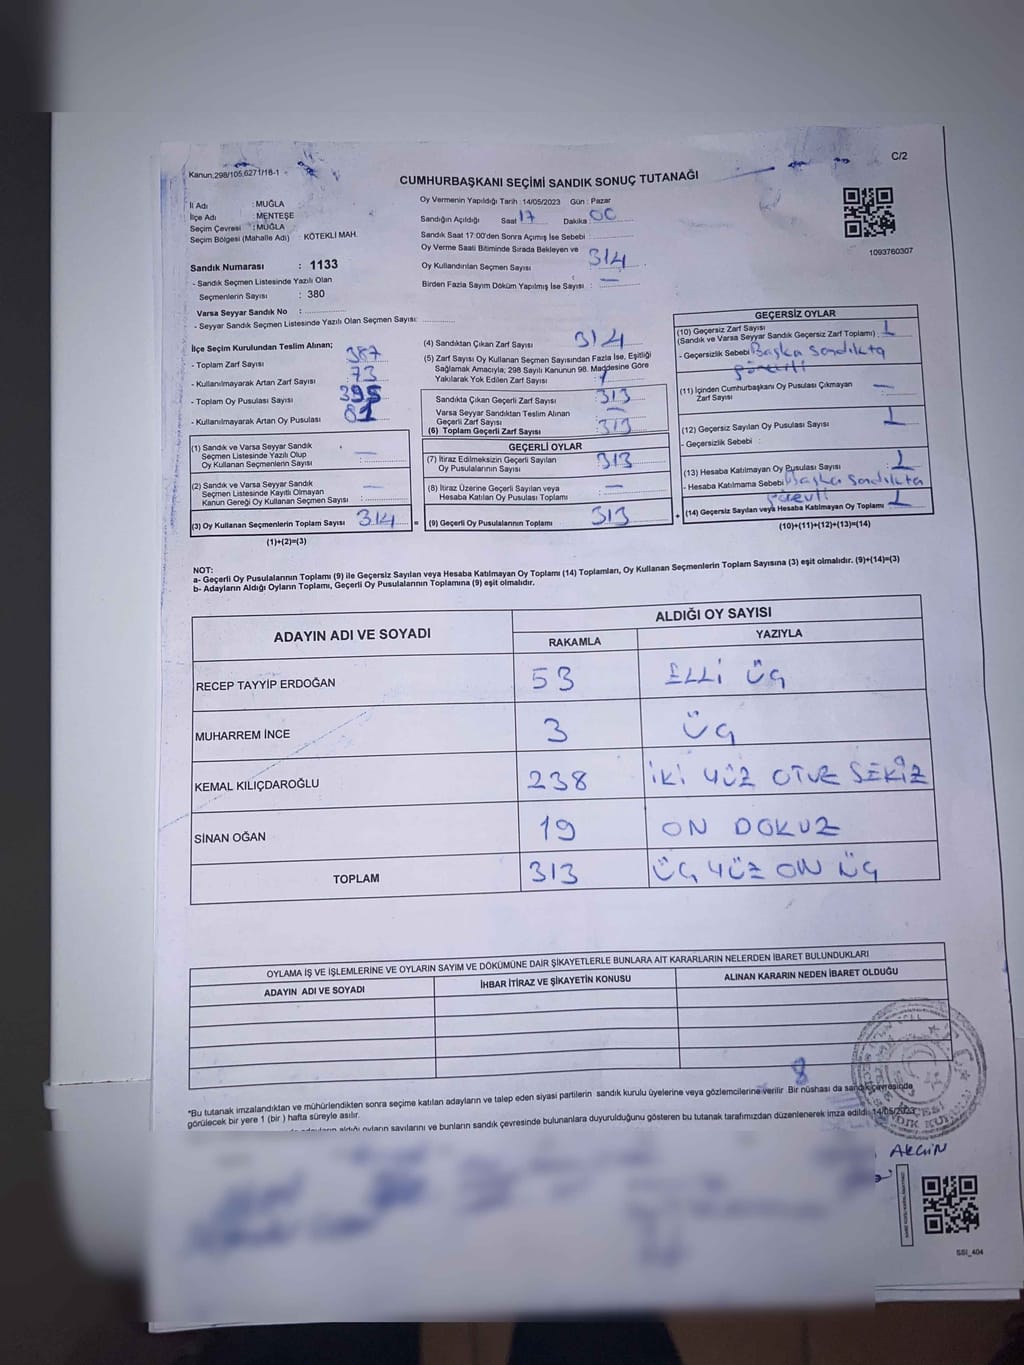 Kanun.298/105,6271/18-1
C/2
CUMHURBAŞKANI SEÇİMİ SANDIK SONUÇ TUTANAĞI
İl Adı : MUĞLA
İlçe Adı : MENTEŞE
Seçim Çevresi : MUĞLA
Seçim Bölgesi (Mahalle Adı) : KÖTEKLİ MAH.
Sandık Numarası : 1133
- Sandık Seçmen Listesinde Yazılı Olan
Seçmenlerin Sayısı : 380
Varsa Seyyar Sandık No :
- Seyyar Sandık Seçmen Listesinde Yazılı Olan Seçmen Sayısı:
Oy Vermenin Yapıldığı Tarih : 14/05/2023 Gün : Pazar
Sandığın Açıldığı Saat 17 Dakika 00
Sandık Saat 17:00'den Sonra Açımış İse Sebebi :
Oy Verme Saati Bitiminde Sırada Bekleyen ve
Oy Kullandırılan Seçmen Sayısı 314
Birden Fazla Sayım Döküm Yapılmış İse Sayısı : —
1093760307
İlçe Seçim Kurulundan Teslim Alınan;
- Toplam Zarf Sayısı 387
- Kullanılmayarak Artan Zarf Sayısı 73
- Toplam Oy Pusulası Sayısı 395
- Kullanılmayarak Artan Oy Pusulası 81
(1) Sandık ve Varsa Seyyar Sandık
Seçmen Listesinde Yazılı Olup
Oy Kullanan Seçmenlerin Sayısı : —
(2) Sandık ve Varsa Seyyar Sandık
Seçmen Listesinde Kayıtlı Olmayan
Kanun Gereği Oy Kullanan Seçmen Sayısı : —
(3) Oy Kullanan Seçmenlerin Toplam Sayısı 314 =
(1)+(2)=(3)
(4) Sandıktan Çıkan Zarf Sayısı 314
(5) Zarf Sayısı Oy Kullanan Seçmen Sayısından Fazla İse, Eşitliği
Sağlamak Amacıyla; 298 Sayılı Kanunun 98. Maddesine Göre
Yakılarak Yok Edilen Zarf Sayısı :
Sandıkta Çıkan Geçerli Zarf Sayısı 313
Varsa Seyyar Sandıktan Teslim Alınan
Geçerli Zarf Sayısı —
(6) Toplam Geçerli Zarf Sayısı 313
GEÇERLİ OYLAR
(7) İtiraz Edilmeksizin Geçerli Sayılan
Oy Pusulalarının Sayısı 313
(8) İtiraz Üzerine Geçerli Sayılan veya
Hesaba Katılan Oy Pusulası Toplamı —
(9) Geçerli Oy Pusulalarının Toplamı 313 +
GEÇERSİZ OYLAR
(10) Geçersiz Zarf Sayısı
(Sandık ve Varsa Seyyar Sandık Geçersiz Zarf Toplamı) 1
- Geçersizlik Sebebi Başka Sandıkta
görevli
(11) İçinden Cumhurbaşkanı Oy Pusulası Çıkmayan
Zarf Sayısı —
(12) Geçersiz Sayılan Oy Pusulası Sayısı 1
- Geçersizlik Sebebi :
(13) Hesaba Katılmayan Oy Pusulası Sayısı 1
- Hesaba Katılmama Sebebi Başka Sandıkta
görevli
(14) Geçersiz Sayılan veya Hesaba Katılmayan Oy Toplamı 1
(10)+(11)+(12)+(13)=(14)
NOT:
a- Geçerli Oy Pusulalarının Toplamı (9) ile Geçersiz Sayılan veya Hesaba Katılmayan Oy Toplamı (14) Toplamları, Oy Kullanan Seçmenlerin Toplam Sayısına (3) eşit olmalıdır. (9)+(14)=(3)
b- Adayların Aldığı Oyların Toplamı, Geçerli Oy Pusulalarının Toplamına (9) eşit olmalıdır.
ADAYIN ADI VE SOYADI
ALDIĞI OY SAYISI
RAKAMLA
YAZIYLA
RECEP TAYYİP ERDOĞAN 53 ELLİ ÜÇ
MUHARREM İNCE 3 ÜÇ
KEMAL KILIÇDAROĞLU 238 İKİ YÜZ OTUZ SEKİZ
SİNAN OĞAN 19 ON DOKUZ
TOPLAM 313 ÜÇ YÜZ ON ÜÇ
OYLAMA İŞ VE İŞLEMLERİNE VE OYLARIN SAYIM VE DÖKÜMÜNE DAİR ŞİKAYETLERLE BUNLARA AİT KARARLARIN NELERDEN İBARET BULUNDUKLARI
ADAYIN ADI VE SOYADI
İHBAR İTİRAZ VE ŞİKAYETİN KONUSU
ALINAN KARARIN NEDEN İBARET OLDUĞU
8
*Bu tutanak imzalandıktan ve mühürlendikten sonra seçime katılan adayların ve talep eden siyasi partilerin sandık kurulu üyelerine veya gözlemcilerine verilir. Bir nüshası da sandık çevresinde
görülecek bir yere 1 (bir) hafta süreyle asılır.
aldığı oyların sayılarını ve bunların sandık çevresinde bulunanlara duyurulduğunu gösteren bu tutanak tarafımızdan düzenlenerek imza edildi. 14/05/2023
AKGÜN
SSI_404